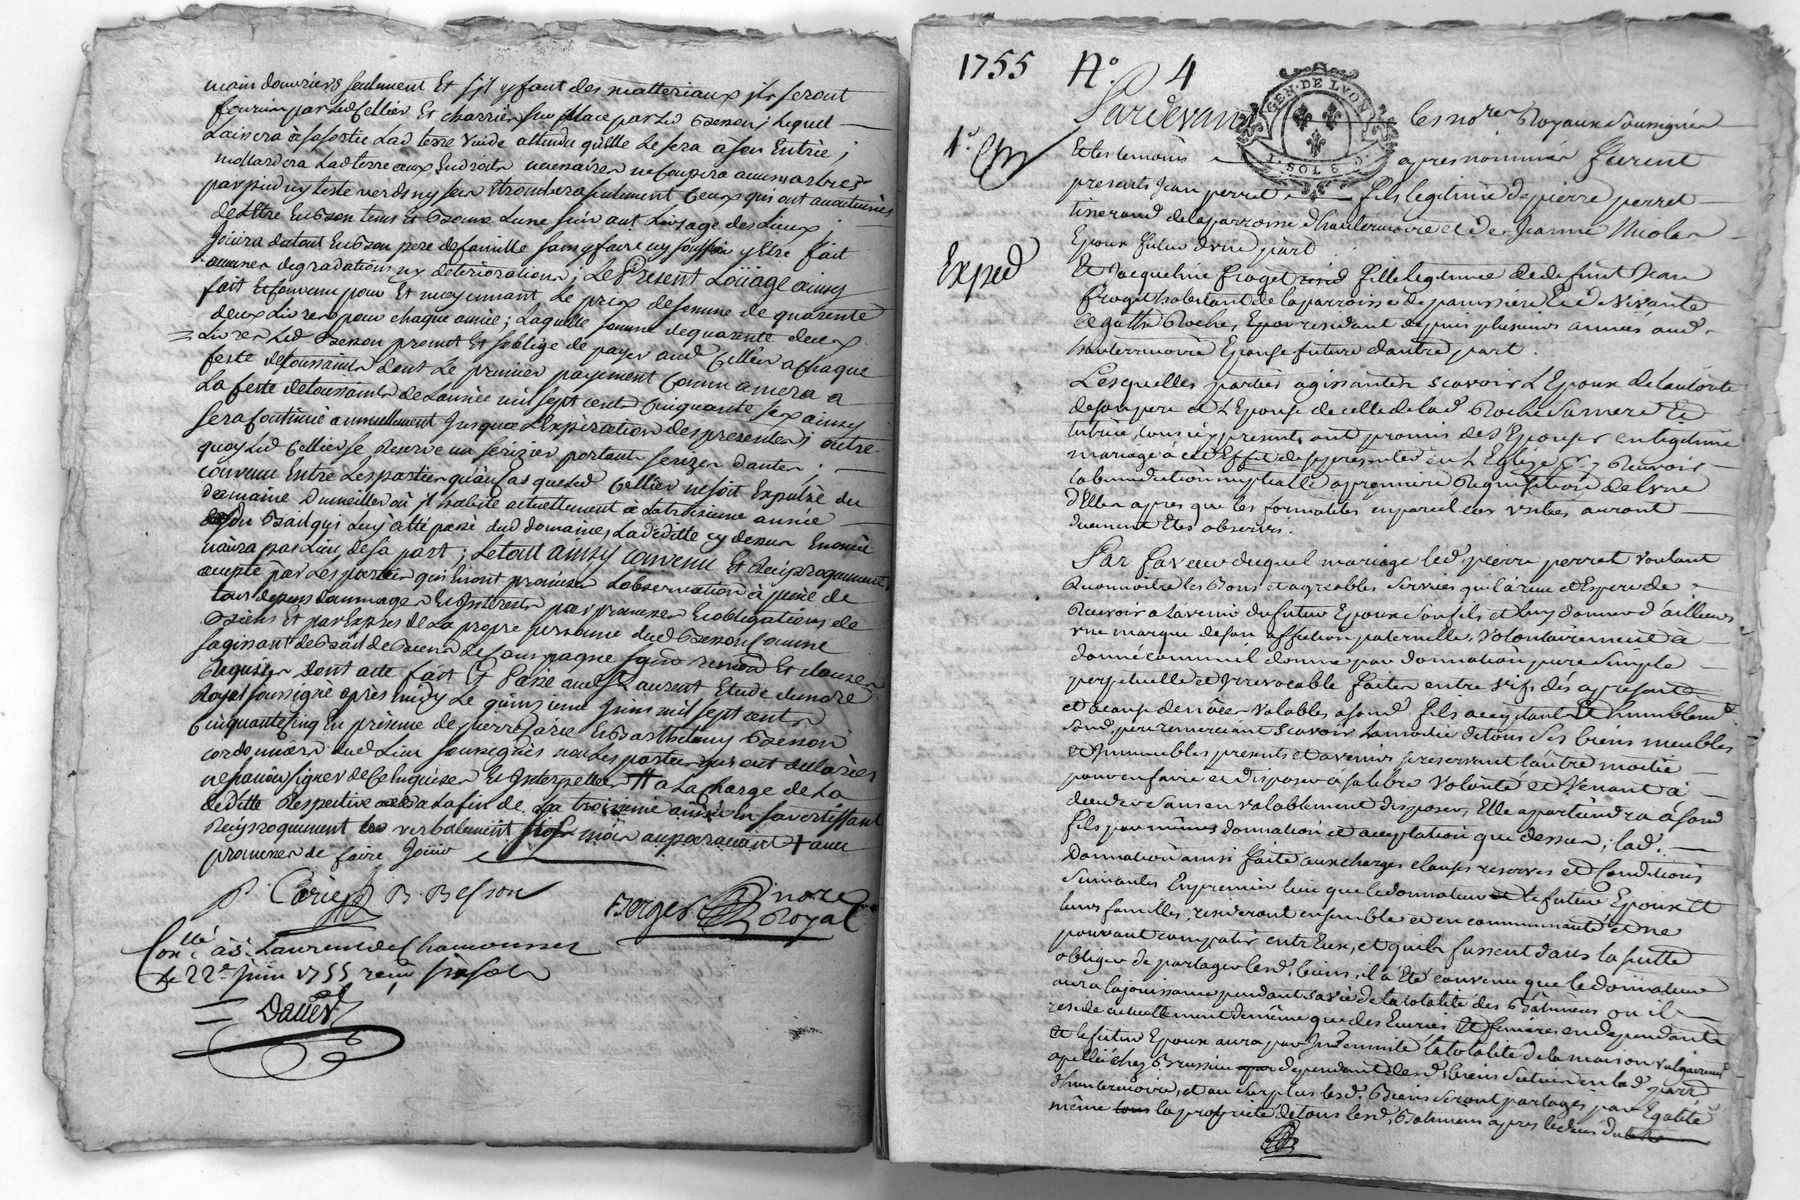 main douvriers seulement Et s'il y faut des matteriaux ils seront
fournis par led Cellier Et charriés sur place par led Besson, lequel
Laissera à sa sortie Lad terre vuide attendu qu'elle Le sera à son Entrée ;
Lad terre aux Endroits necessaires ne Coupera aucuns arbres
par pied ny teste verds ny secs seulement Ceux qui ont accoutumés
de L'etre En bon tems Et saison Lune suivant L'usage des Lieux,
Jouira du tout En bon pere de famille sans y faire ny souffrir y Etre fait
aucunes degradations ny deteriorations ; Le Present Loüage ainsy
fait Et Convenu pour Et moyennant Le prix de somme de quarente
deux Livres pour chaque année ; Laquelle somme de quarente deux
Livres Led Besson promet Et s'oblige de payer aud Cellier a chaque
feste de toussaints dont Le premier payement Commancera a
La feste de toussaints de Lannée mil sept cents Cinquante six ainsy
sera Continué annuellement Jusqua L'expiration des presentes ; outre
quoy Led Cellier se Reserve un serizier portant serizes dantes ;
convenu Entre Les parties qu'au Cas que Led Cellier ne soit Expulsé du
domaine Dumeillier où il habite actuellement à La troisieme année
du Bail qui Luy a été passé dud domaine, La deditte cy dessus Enoncée
n'aura pas Lieu de sa part ; Le tout ainsy convenu Et Reciproquement
accepté par Les parties qui En ont promises L'observation à peine de
tous depens dommages Et Interests par promesses Et obligations de
Biens Et par Expres de La propre personne dud Besson Comme
s'agissant de Bail de Biens de Campagne sous renon Et clauses
Requises dont acte fait Et Passé aud St Laurent Etude du nore
Royal soussigné apres midy Le quinzieme Juin mil sept cents
Cinquante cinq En presence de pierre Cerie Et Barthelemy Besson
cordonniers dud Lieu soussignés non Les parties qui ont declarées
ne savoir signer de Ce Enquises Et Interpellées # a La Charge de La
deditte Respective a La fin de La troisieme année En s'avertissant
Reciproquement verbalement six mois auparavant + avec
promesses de faire Jouir
P. Cerie B. Besson
Berger nore Royal
Conllé à St Laurent de Chamousset
Le 22e Juin 1755 reçu six sols
Dauer
1755 No. 4
GEN. DE LYON
1. SOL 8 D.
Pardevant les nores Royaux soussignés
1o. Con
Et les temoins apres nommés furent
presents Jean perret fils legitime de pierre perret
tisserand de la parroisse d'hauterivoire et de Jeanne Nicolas
Epoux futur d'une part
Exped
Et Jacqueline froget fille legitime de defunt Jean
froget habitant de la parroisse de panissiere Et de vivante
Agathe Roche, Epouse residant depuis plusieurs années aud
hauterivoire Epouse future d'autre part.
Lesquelles parties agissantes scavoir L'Epoux de lautorité
de son pere et L'Epouse de celle de lad Roche sa mere Et
tutrice, tous icy presents, ont promis de s'Epouser en legitime
mariage à cet Effet de se presenter en L'Eglise pr y Recevoir
la benediction nuptialle a premiere Requisition de l'une
d'Elles apres que les formalités en pareil cas usitées auront
duement Etés observés.
Par faveur duquel mariage led pierre perret voulant
Reconnoitre les Bons et agreables services qu'il a reçu et Espere de
Recevoir a Lavenir du futur Epoux son fils et luy donner d'ailleurs
une marque de son affection paternelle, volontairement a
donné comme il donne par donnation pure simple
perpetuelle et Irrevocable faitte entre vifs dés apresent
et a cause de nôces valables a sond fils acceptant Et humblemt
sond pere remerciant scavoir La moitié de tous ses biens meubles
et Immeubles presents et avenirs se reservant lautre moitié
pour en faire et disposer a sa libre volonté et venant à
deceder sans en valablement disposer, Elle appartiendra à sond
fils par même donnation et acceptation que dessus ; lad.
Donnation ainsi faite aux charges clauses reserves et Conditions
suivantes En premier lieu que le donnateur et le futur Epoux Et
leurs familles, resideront ensemble et en communauté et ne
pouvant compatir entr'Eux, et qu'ils fussent dans la suitte
obligés de partager lesd. biens, il a Eté convenu que le donnateur
aura la jouissance pendant sa vie de la totalité des Batimens ou il
reside actuellement de même que des Ecuries Et fenieres en dependants
et le futur Epoux aura par Indemnité la totalité de la maison vulgairemt
apellée chez Brussin dependant desd. biens située en lad. parr
d'hauterivoire, et au surplus lesd. Biens seront partagés par Egalité
même la proprieté de tous lesd. Batimens apres le deces du